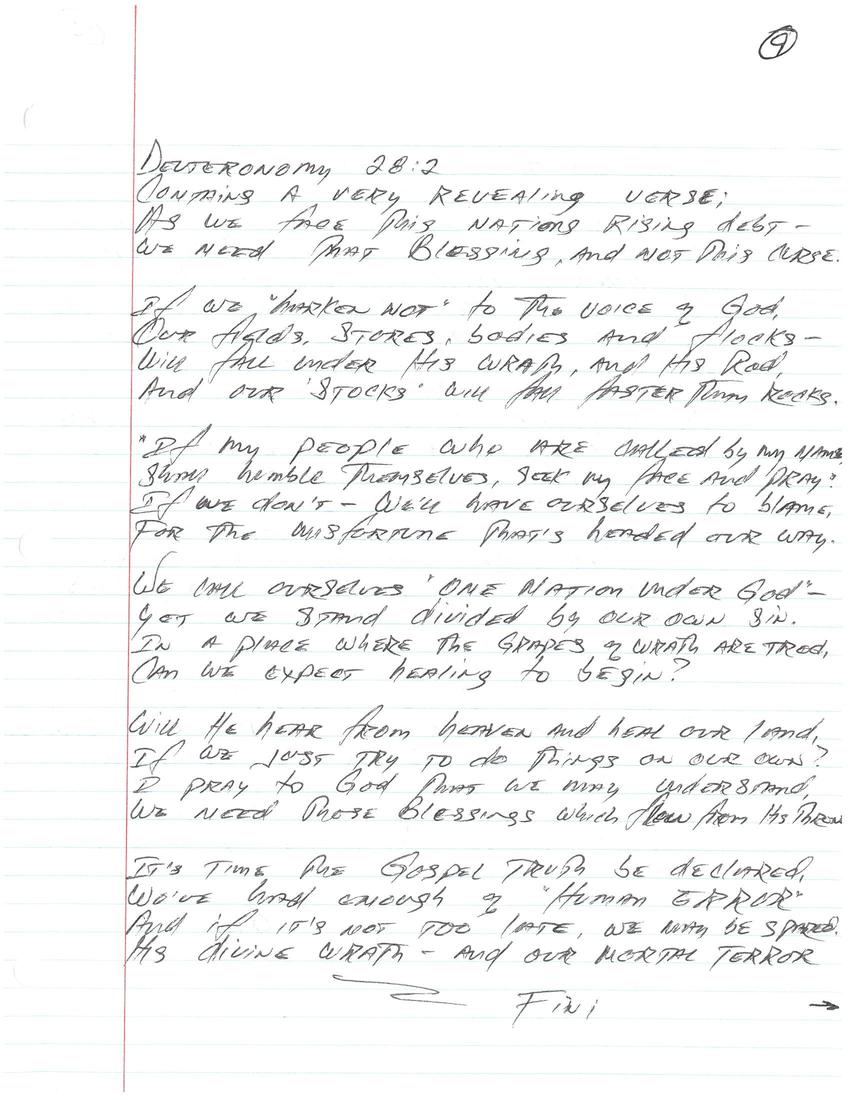 9
Deuteronomy 28:2
Contains a very revealing verse;
As we face this nations rising debt –
We need that Blessing, and not this curse.
If we "harken not" to the voice of God,
Our fields, stores, bodies and flocks –
Will fall under His wrath, and His Rod,
And our 'stocks' will fall faster than rocks.
"If my people who are called by my name,
Shall humble themselves, seek my face and pray".
If we don't – we'll have ourselves to blame,
For the misfortune that's headed our way.
We call ourselves "one nation under God" –
Yet we stand divided by our own sin.
In a place where the grapes of wrath are trod,
Can we expect healing to begin?
Will He hear from heaven and heal our land,
If we just try to do things on our own?
I pray to God that we may understand,
We need those Blessings which flow from His Throne
It's time the Gospel Truth be declared,
We've had enough of "Human ERROR"
And if it's not too late, we may be spared.
His divine wrath – and our mortal terror
Fini
→